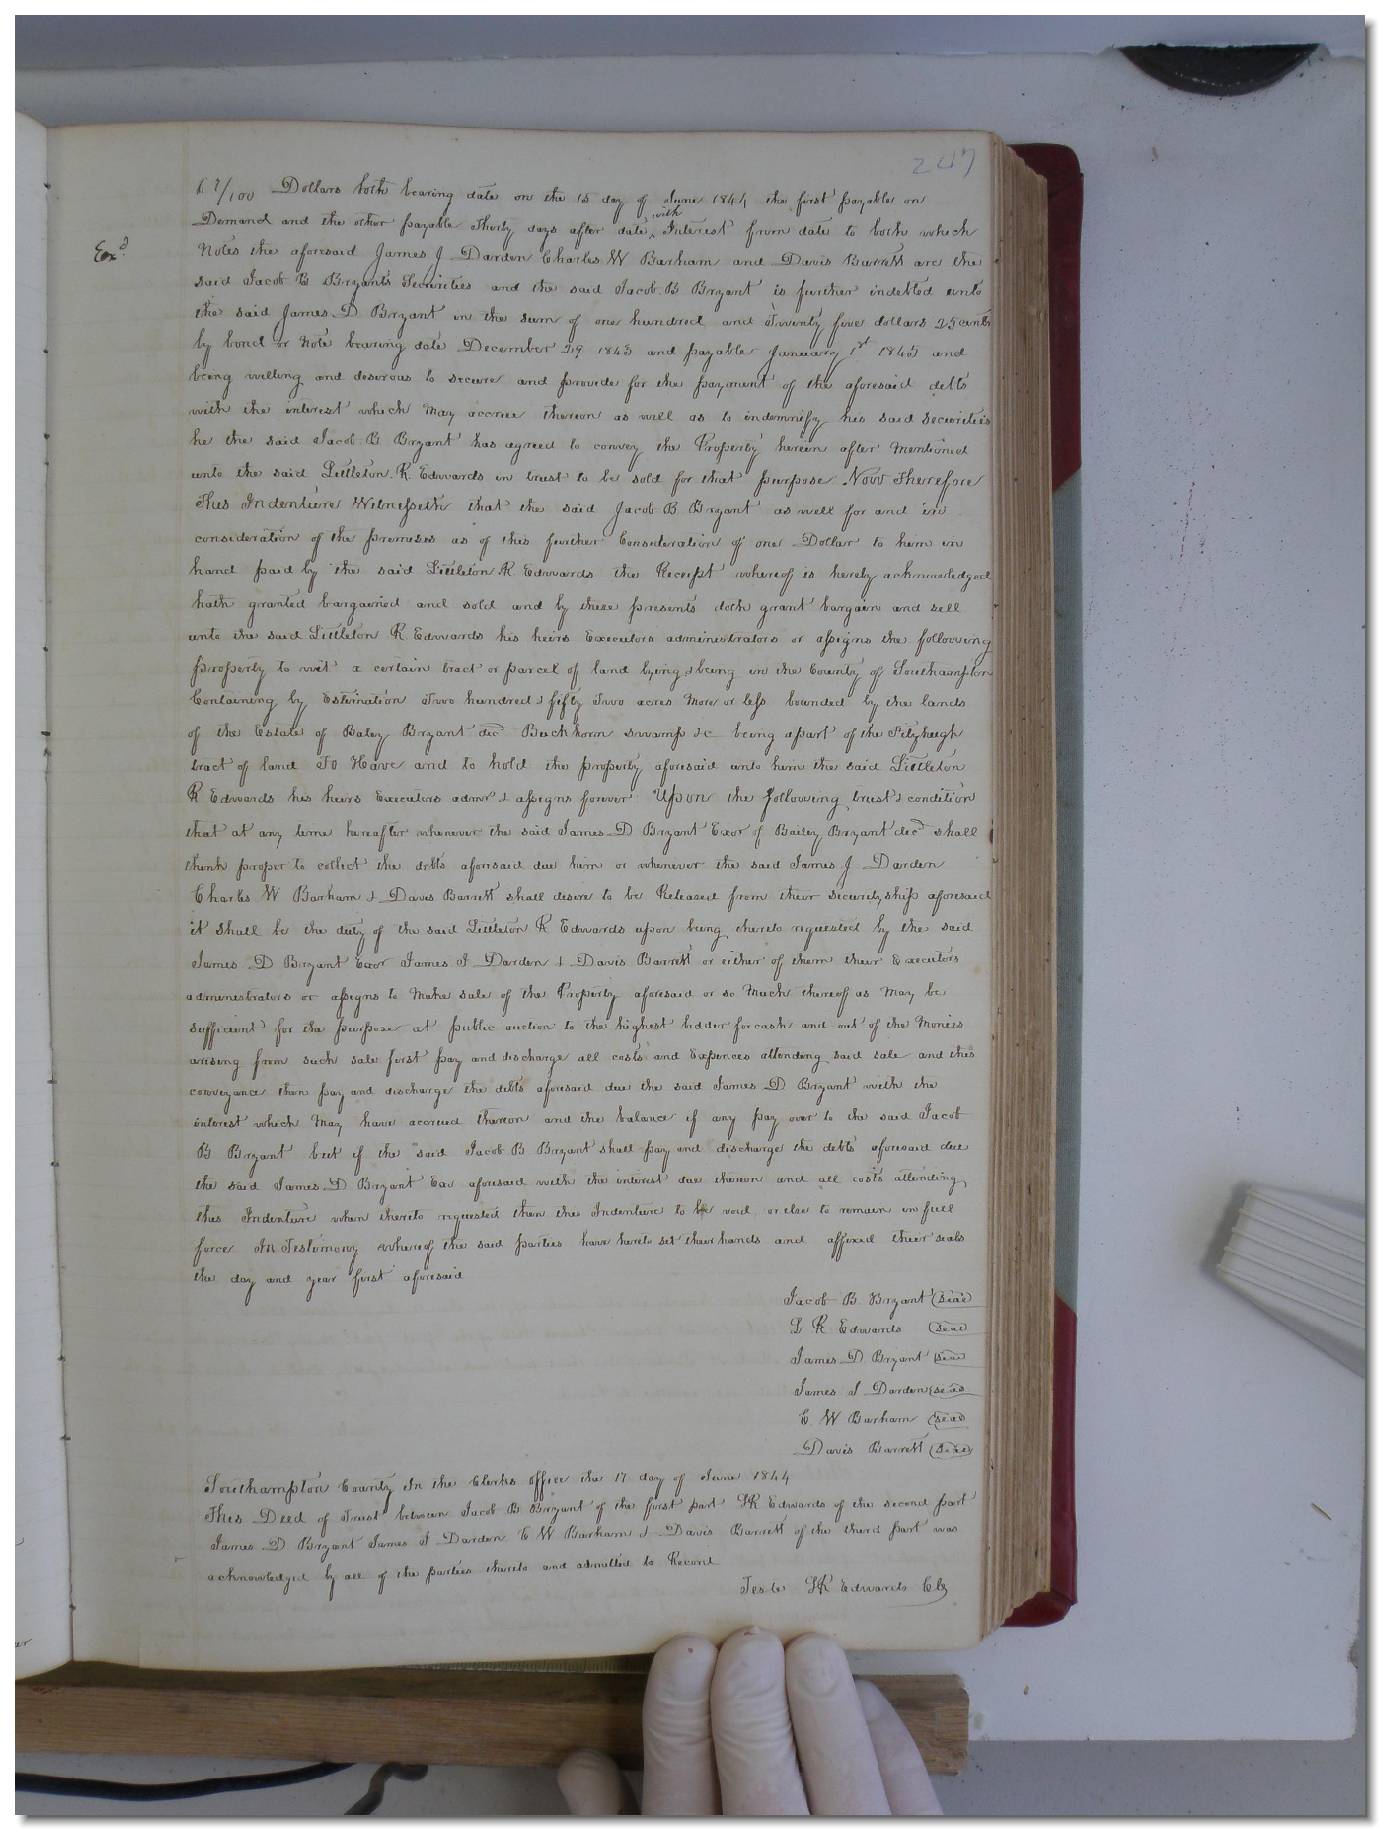 247
67/100 Dollars both bearing date on the 15 day of June 1844 the first payable on
Demand and the other payable Thirty days after date with Interest from date to both which
Exd
Notes the aforesaid James J Darden Charles W Barham and Davis Barrett are the
said Jacob B Bryants Securities and the said Jacob B Bryant is further indebted unto
the said James D Bryant in the sum of one hundred and Twenty five dollars 25 cents
by bond or Note bearing date December 29 1843 and payable January 1st 1845 and
being willing and desirous to secure and provide for the payment of the aforesaid debts
with the interest which May accrue thereon as well as to indemnify his said securities
he the said Jacob B Bryant has agreed to convey the Property herein after Mentioned
unto the said Littleton R. Edwards in trust to be sold for that purpose Now Therefore
This Indenture Witnesseth that the said Jacob B Bryant as well for and in
consideration of the premises as of this further Consideration of one Dollar to him in
hand paid by the said Littleton R Edwards the Receipt whereof is hereby acknowledged
hath granted bargained and sold and by these presents doth grant bargain and sell
unto the said Littleton R Edwards his heirs Executors administrators or assigns the following
property to wit a certain tract or parcel of land lying & being in the County of Southampton
Containing by Estimation Two hundred & fifty Two acres More or less bounded by the lands
of the Estate of Batey Bryant decd Buckhorn swamp &c being apart of the Fitzhugh
tract of land To Have and to hold the property aforesaid unto him the said Littleton
R Edwards his heirs Executors admrs & assigns forever Upon the following trust & condition
that at any time hereafter whenever the said James D Bryant Exor of Bailey Bryant decd shall
think proper to collect the debts aforesaid due him or whenever the said James J Darden
Charles W Barham & Davis Barrett shall desire to be Released from their securityship aforesaid
it shall be the duty of the said Littleton R Edwards upon being thereto requested by the said
James D Bryant Exor James J Darden & Davis Barrett or either of them their Executors
administrators or assigns to Make sale of the Property aforesaid or so Much thereof as May be
sufficient for the purpose at public auction to the highest bidder for cash and out of the Monies
arising from such sale first pay and discharge all costs and Expences attending said sale and this
conveyance then pay and discharge the debts aforesaid due the said James D Bryant with the
interest which May have accrued thereon and the balance if any pay over to the said Jacob
B Bryant but if the said Jacob B Bryant shall pay and discharge the debts aforesaid due
the said James D Bryant Exor aforesaid with the interest due thereon and all costs attending
this Indenture when thereto requested then the Indenture to be void or else to remain in full
force In Testimony whereof the said parties have hereto set their hands and affixed their seals
the day and year first aforesaid
Jacob B. Bryant seal
L R Edwards seal
James D Bryant seal
James J Darden seal
C W Barham seal
Davis Barrett seal
Southampton County In the Clerks office the 17 day of June 1844
This Deed of Trust between Jacob B Bryant of the first part LR Edwards of the second part
James D Bryant James J Darden C W Barham & Davis Barrett of the third part was
acknowledged by all of the parties thereto and admitted to Record
Teste LR Edwards Clk